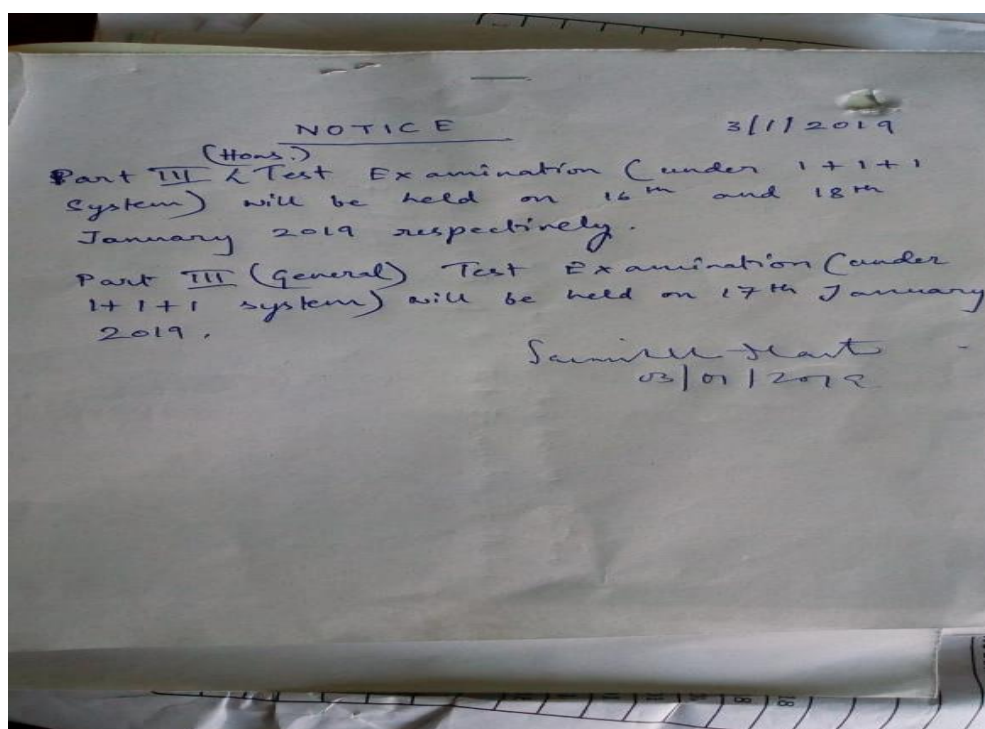 NOTICE 3/1/2019
(Hons.)
Part III < Test Examination (under 1+1+1
System) will be held on 16th and 18th
January 2019 respectively.
Part III (General) Test Examination (under
1+1+1 system) will be held on 17th January
2019.
03/01/2019